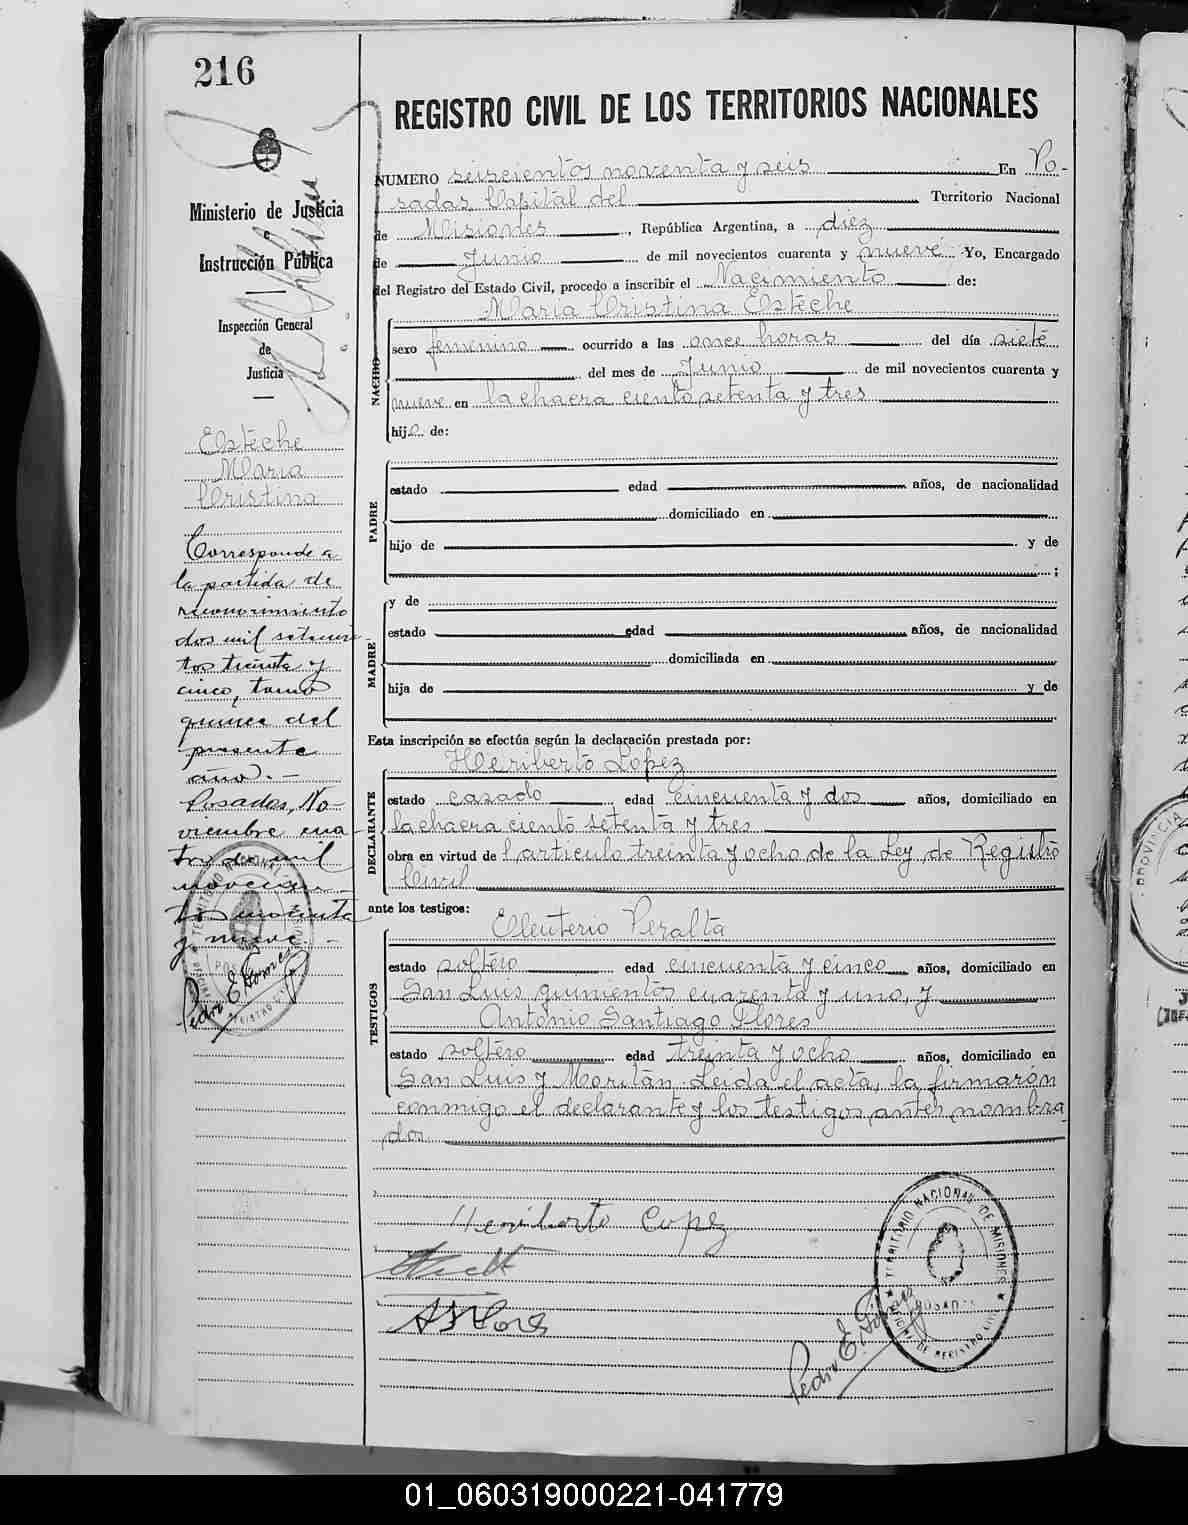 216
REGISTRO CIVIL DE LOS TERRITORIOS NACIONALES
Ministerio de Justicia
e
Instrucción Pública
Inspección General
de
Justicia
Esteche
Maria
Cristina
Corresponde a
la partida de
reconocimiento
dos mil setecien-
tos treinta y
cinco, tomo
quince del
presente
año.-
Posadas, No-
viembre cua-
tro de mil
novecien-
tos cuarenta
y nueve.-
Pedro E. Gomez
NUMERO seiscientos noventa y seis En Po-
sadas Capital del Territorio Nacional
de Misiones, República Argentina, a diez
de Junio de mil novecientos cuarenta y nueve Yo, Encargado
del Registro del Estado Civil, procedo a inscribir el Nacimiento de:
Maria Cristina Esteche
NACIDO
sexo femenino ocurrido a las once horas del día siete
del mes de Junio de mil novecientos cuarenta y
nueve en la chacra ciento setenta y tres
hija de:
PADRE
estado edad años, de nacionalidad
domiciliado en
hijo de y de
;
MADRE
y de
estado edad años, de nacionalidad
domiciliada en
hija de y de
Esta inscripción se efectúa según la declaración prestada por:
Heriberto Lopez
DECLARANTE
estado casado edad cincuenta y dos años, domiciliado en
la chacra ciento setenta y tres
obra en virtud del articulo treinta y ocho de la Ley de Registro
Civil
ante los testigos:
Eleuterio Peralta
TESTIGOS
estado soltero edad cincuenta y cinco años, domiciliado en
San Luis quinientos cuarenta y uno, y
Antonio Santiago Flores
estado soltero edad treinta y ocho años, domiciliado en
San Luis y Moritán. Leida el acta, la firmarón
conmigo el declarante y los testigos antes nombra
dos.
Heriberto Lopez
A S Flores
TERRITORIO NACIONAL DE MISIONES
POSADAS
OFICINA DE REGISTRO CIVIL
Pedro E. Gomez
PROVINCIA
01_060319000221-041779